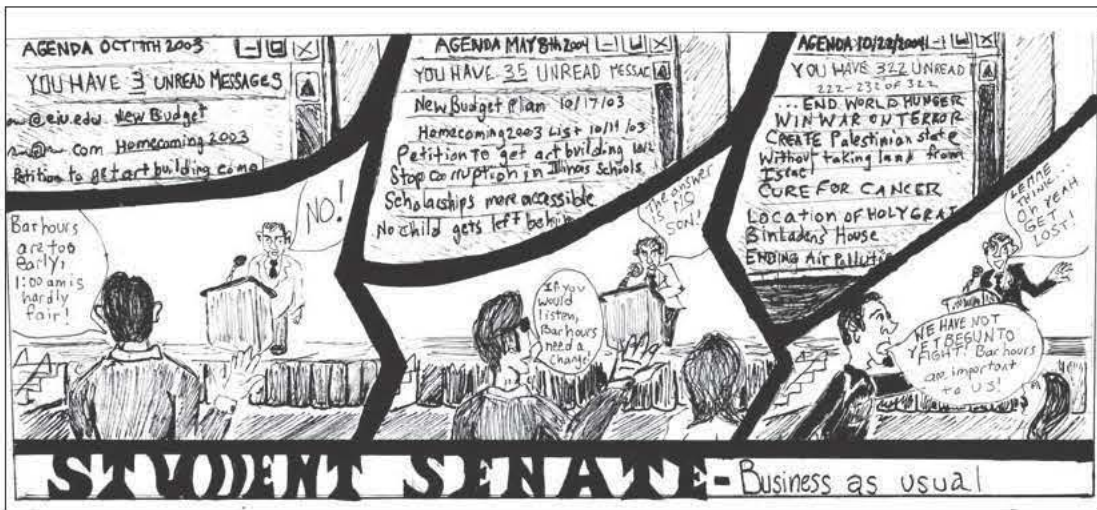 AGENDA OCT 17TH 2003
YOU HAVE 3 UNREAD MESSAGES
@eiu.edu New Budget
.com Homecoming 2003
Petition to get art building comp
Bar hours
are too
early,
1:00 am is
hardly
fair!
NO!
AGENDA MAY 8th 2004
YOU HAVE 35 UNREAD MESSAG
New Budget Plan 10/17/03
Homecoming 2003 List 10/17/03
Petition To get art building 10/2
Stop corruption in Illinois Schools
Scholarships more accessible
No child gets left behin
The answer
IS NO
SON!
If you
would
listen,
Bar hours
need a
change!
AGENDA 10/22/2004
YOU HAVE 322 UNREAD
222-232 of 322
...END WORLD HUNGER
WIN WAR ON TERROR
CREATE Palestinian state
Without taking land from
Israel
CURE FOR CANCER
Location of HOLY GRAI
BinLadens' House
ENDING Air Pollutio
LEMME
THINK...
Oh YEAH
GET
LOST!
WE HAVE NOT
YET BEGUN TO
FIGHT! Bar hours
are important
to US!
STUDENT SENATE- Business as usual